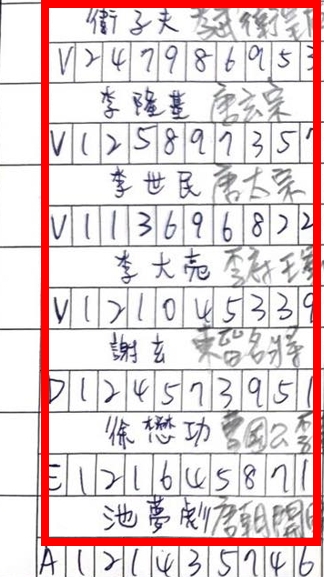 衛子夫 孝武衛皇后
V247986953
李隆基 唐玄宗
V125897357
李世民 唐太宗
V113696822
李大亮
V121045339
謝玄 東晉名將
D124573951
徐懋功 曹國公李
E121645871
池夢劇 唐朝開
A121435746